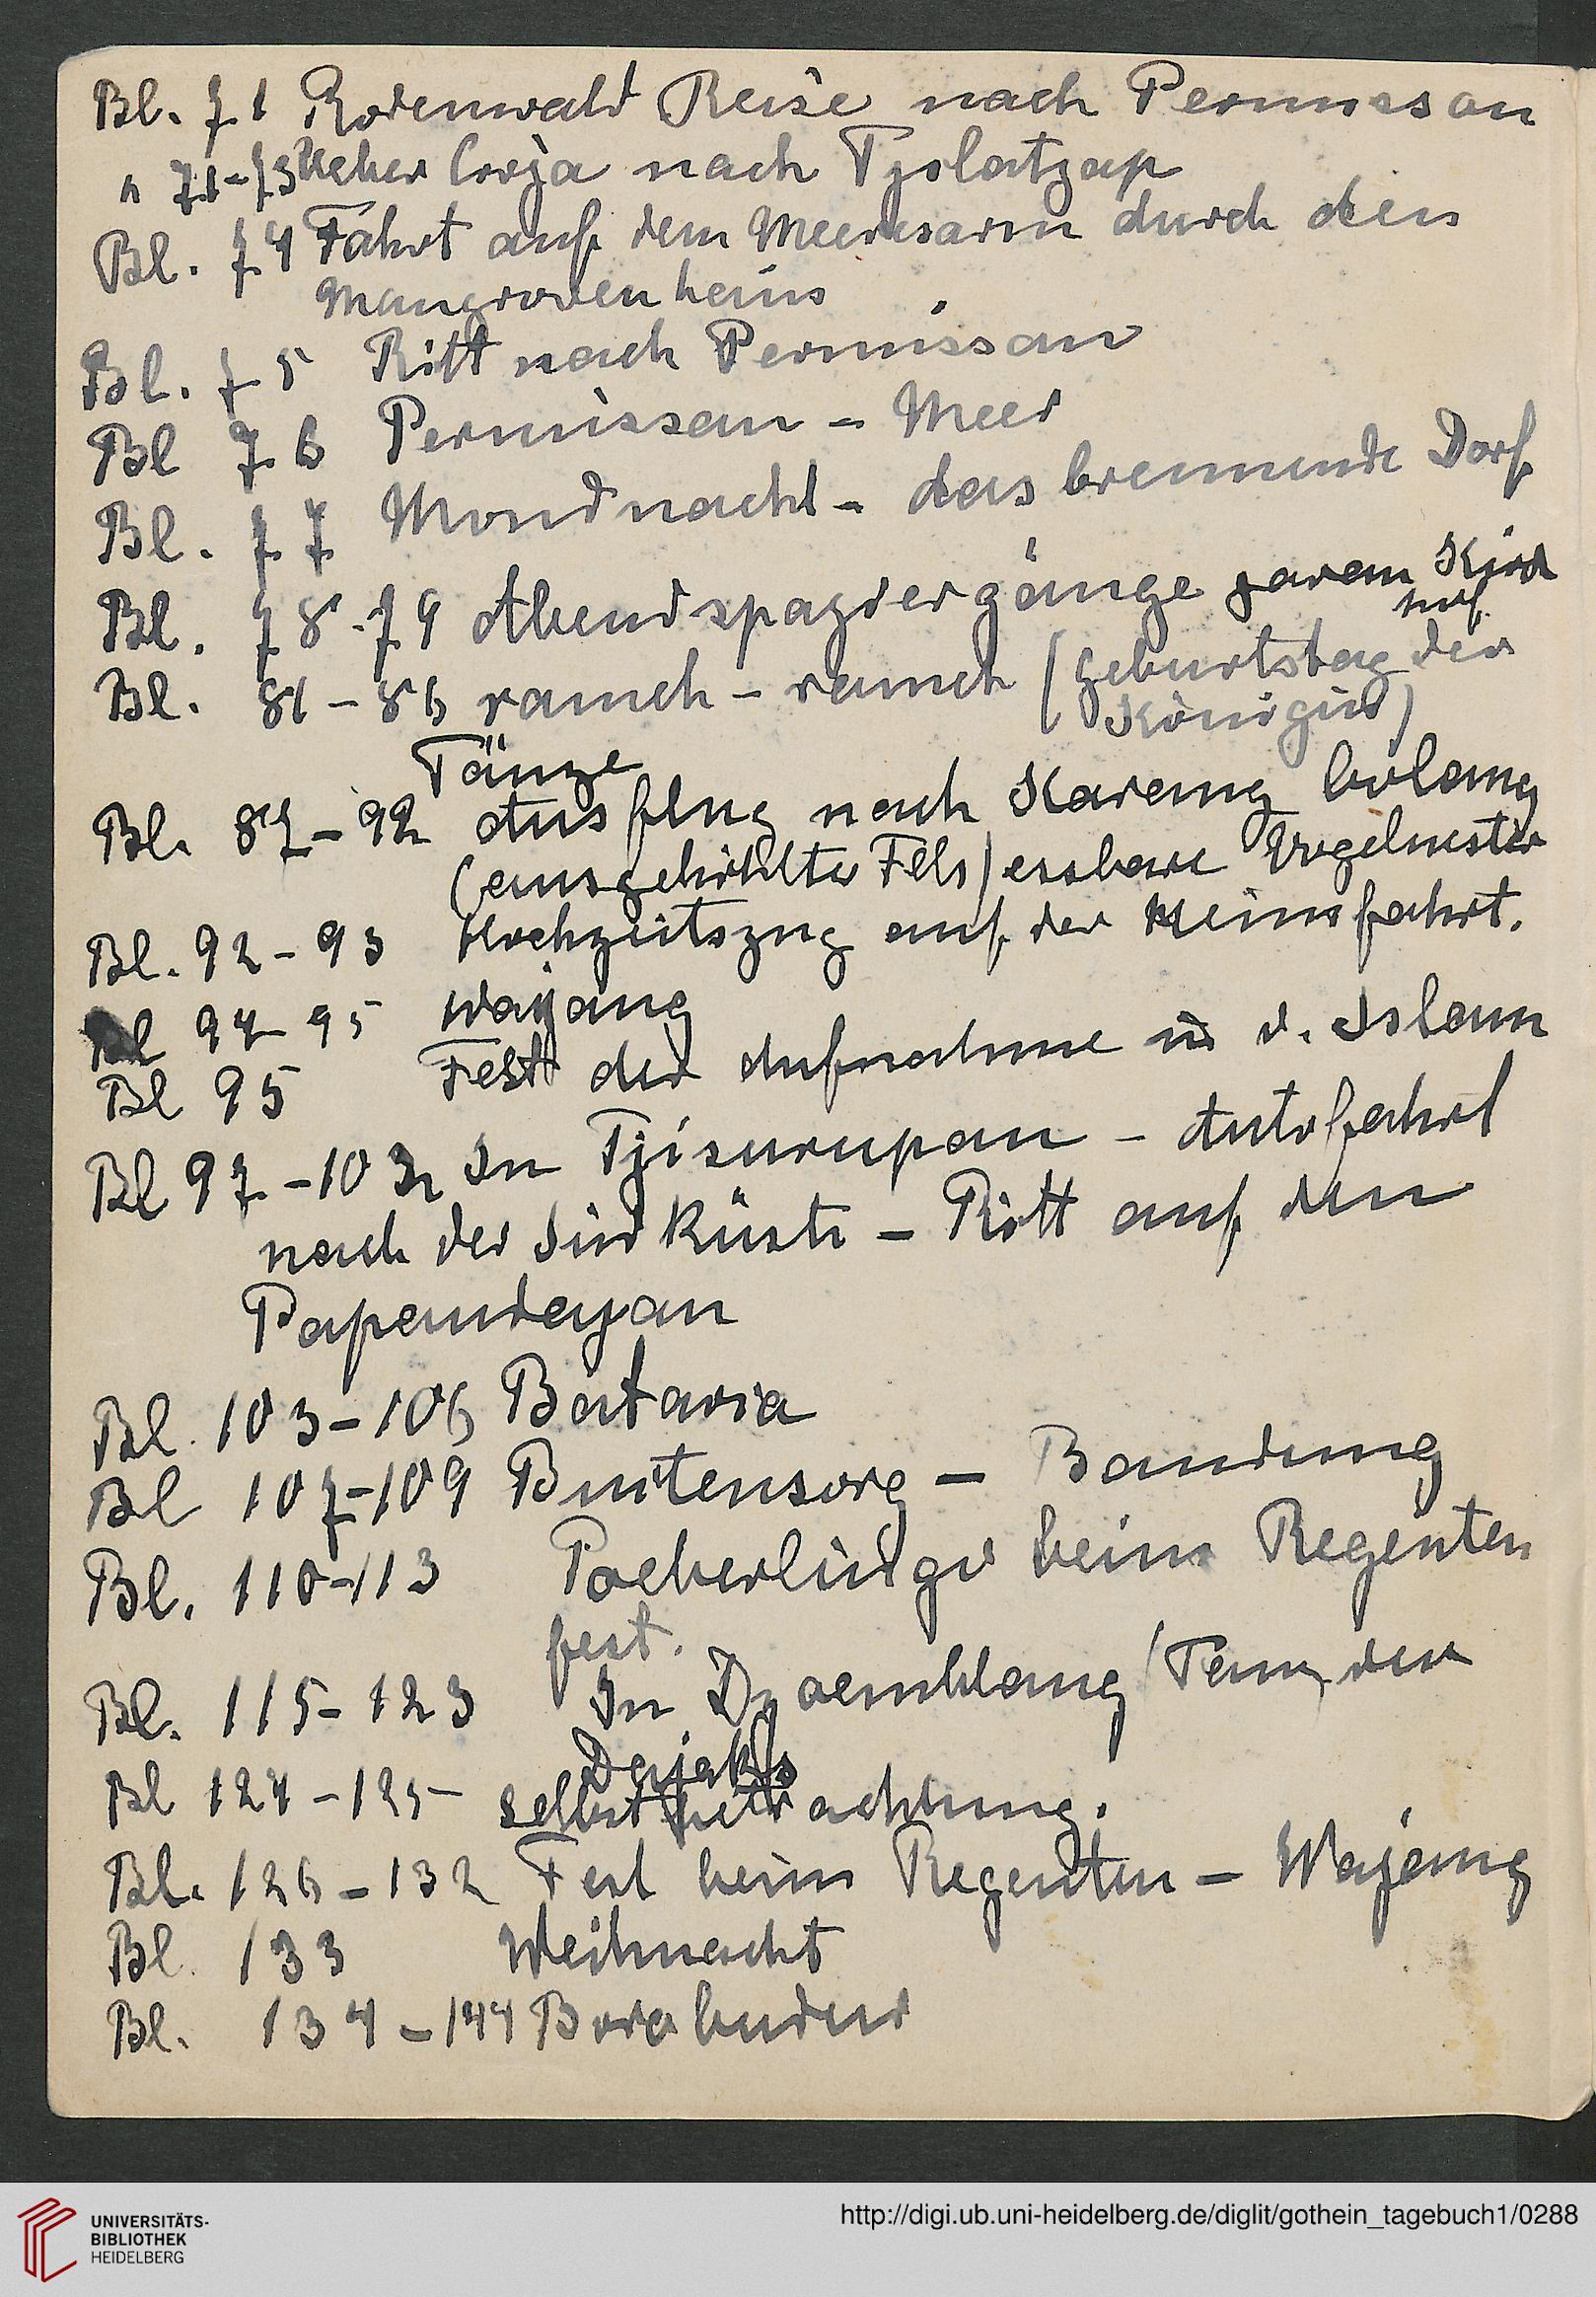 Bl. 71 Rodenwald Reise nach Permissan
" 71-73 Ueber Croja nach Tjolatzap
Bl. 74 Fahrt auf dem Meeresarm durch den
Mangrovenhain
Bl. 75 Ritt nach Permissan
Bl 76 Permissan - Meer
Bl. 77 Mondnacht - das brennende Dorf
Bl. 78-79 Abendspaziergänge Kind
Bl. 81-86 rameh-rameh (Geburtstag der
Königin)
Tänze
Bl. 87-92 Ausflug nach Karang bolang
(ausgehöhlter Fels) essbare Vogelnester
Bl. 92-93 Hochzeitszug auf der Heimfahrt.
Bl 94-95 Wayang
Bl 95 Fest der Aufnahme in d. Islam
Bl 97-102 In Tjisurupan - Autofahrt
nach der Südküste - Ritt auf den
Papandayan
Bl. 103-106 Batavia
Bl 107-109 Buitensorg - Bandung
Bl. 110-113 beim Regenten
fest.
Bl. 115-123 In Tanz der
Dajaks
Bl 124-125 Selbstbetrachtung.
Bl. 126-132 Fest beim Regenten - Wajang
Bl. 133 Weihnacht
Bl. 134-144 Borobudur
UNIVERSITÄTS-
BIBLIOTHEK
HEIDELBERG
http://digi.ub.uni-heidelberg.de/diglit/gothein_tagebuch1/0288